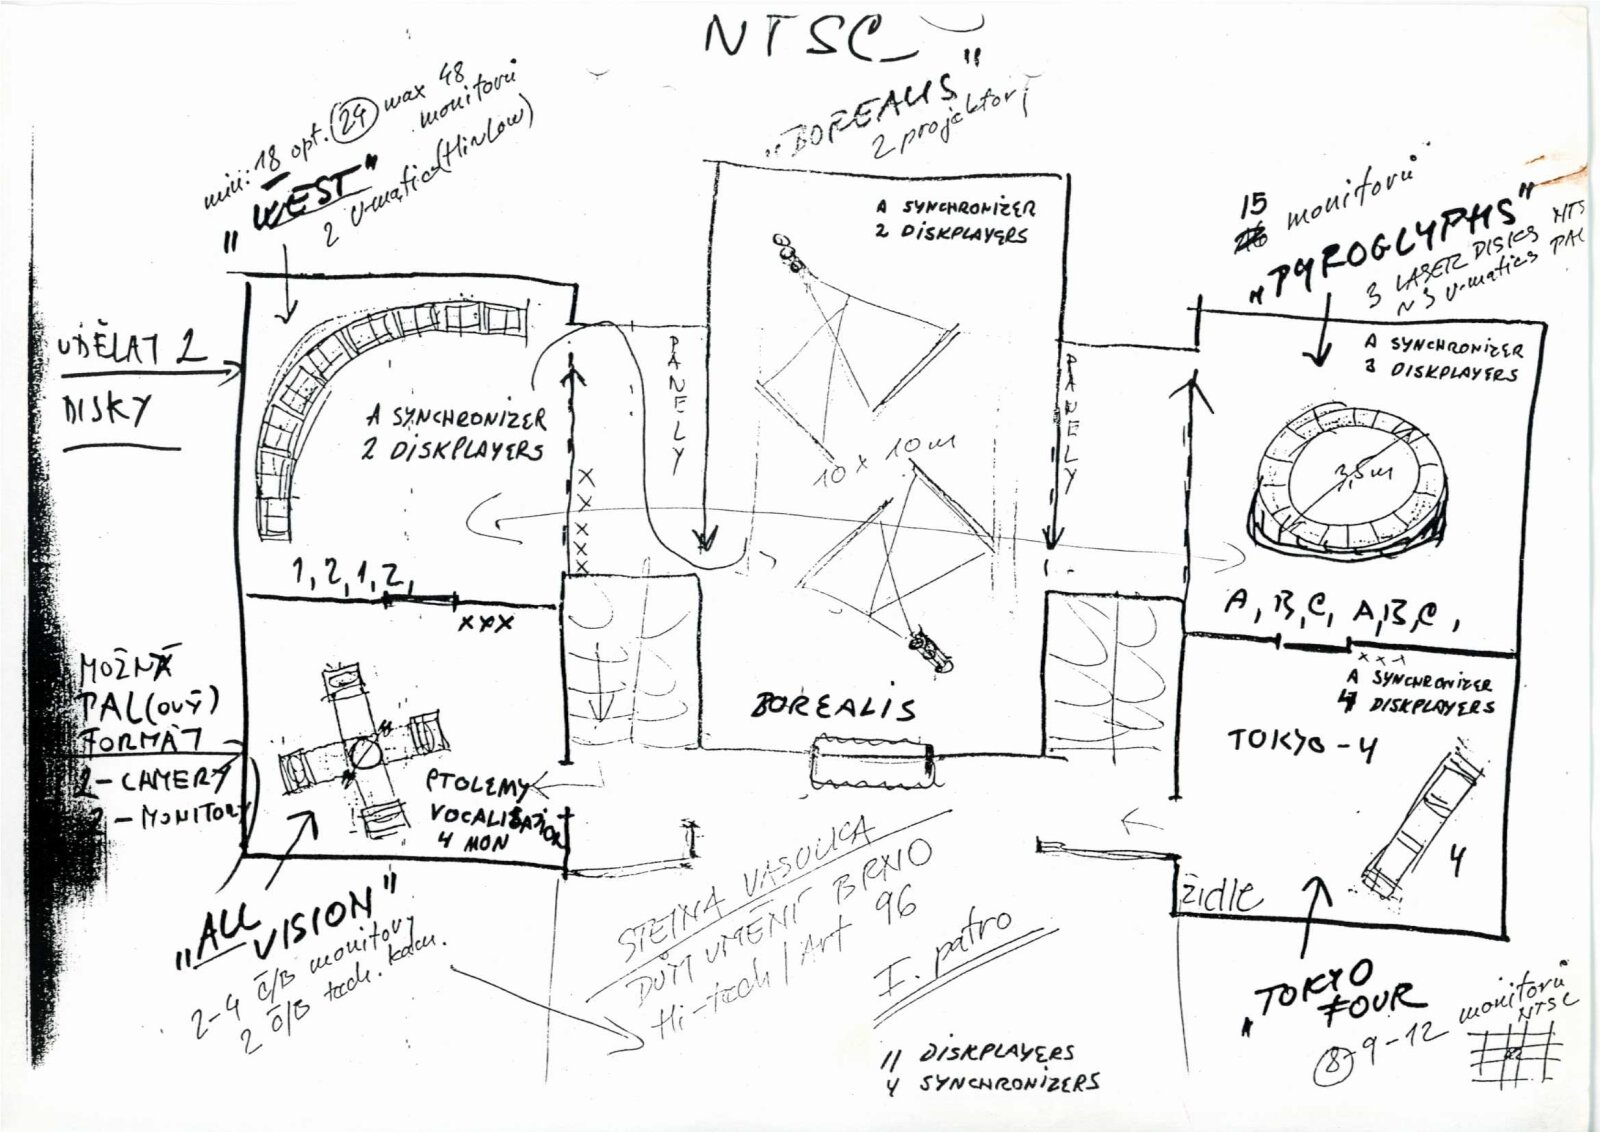 NTSC
min: 18 opt. 24 max 48
monitorů
"WEST"
2 U-matic (Hi/Low)
"BOREALIS"
2 projektory
15
monitorů
"PYROGLYPHS"
3 LASER DISKS NTS
3 U-matics PAL
UDĚLAT 2
DISKY
A SYNCHRONIZER
2 DISKPLAYERS
1, 2, 1, 2,
xxx
PANELY
XXXXX
A SYNCHRONIZER
2 DISKPLAYERS
10 x 10 m
BOREALIS
PANELY
A SYNCHRONIZER
3 DISKPLAYERS
3,5 m
A, B, C, A, B, C,
xxx
A SYNCHRONIZER
4 DISKPLAYERS
TOKYO - 4
4
ŽIDLE
MOŽNÁ
PAL(OVÝ)
FORMÁT
2 - CAMERY
2 - MONITORY
PTOLEMY
VOCALISATION
4 MON
"ALL
VISION"
2-4 č/B monitory
2 č/B tech. kam.
STEINA VASULKA
DŮM UMĚNÍ BRNO
Hi-tech / Art 96
I. patro
11 DISKPLAYERS
4 SYNCHRONIZERS
"TOKYO
FOUR"
8-9-12 monitorů
NTSC